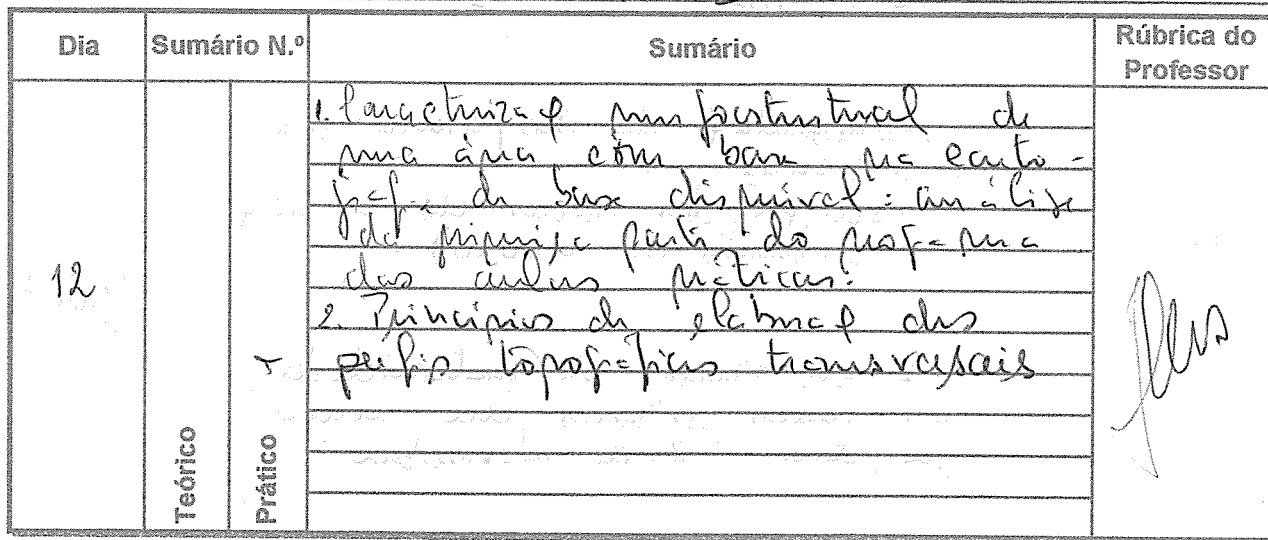 Dia
Sumário N.º
Sumário
Rúbrica do
Professor
1. Caracterizaç morfoestrutural de
uma área com base na carto-
graf. de base disponível: análise
da primeira parte do programa
das aulas práticas.
12
2. Princípios de elaboraç dos
perfis topográficos transversais
Teórico
Prático